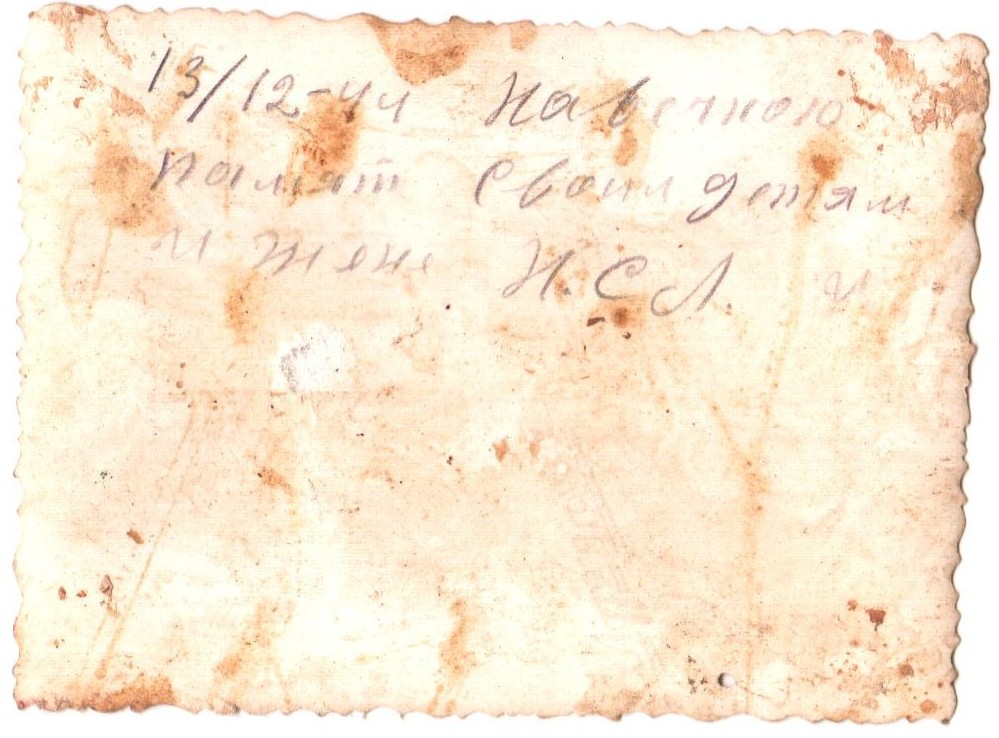 13/12-44 На вечною
памят Своим детям
и жене Н. С Л. и